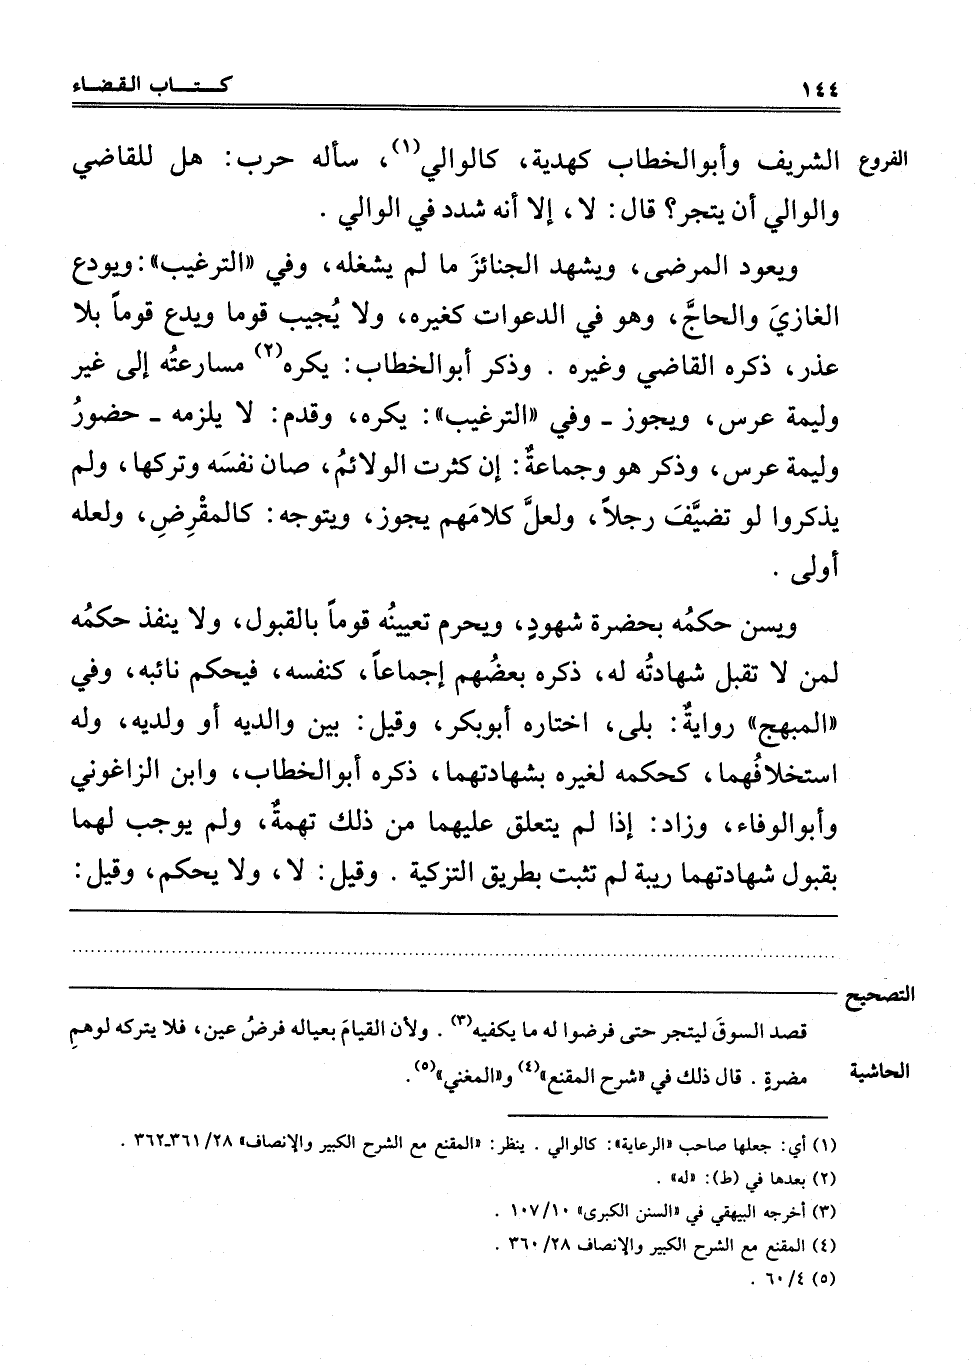 ١٤٤ كـتـاب القـضـاء
الفروع الشريف وأبوالخطاب كهدية، كالوالي(١)، سأله حرب: هل للقاضي
والوالي أن يتجر؟ قال: لا، إلا أنه شدد في الوالي .
ويعود المرضى، ويشهد الجنائزَ ما لم يشغله، وفي «الترغيب»: ويودع
الغازيَ والحاجَّ، وهو في الدعوات كغيره، ولا يُجيب قوما ويدع قوماً بلا
عذر، ذكره القاضي وغيره . وذكر أبوالخطاب: يكره(٢) مسارعتُه إلى غير
وليمة عرس، ويجوز ـ وفي «الترغيب»: يكره، وقدم: لا يلزمه ـ حضورُ
وليمة عرس، وذكر هو وجماعةٌ: إن كثرت الولائمُ، صان نفسَه وتركها، ولم
يذكروا لو تضيَّفَ رجلاً، ولعلَّ كلامَهم يجوز، ويتوجه: كالمقْرِضِ، ولعله
أولى .
ويسن حكمُه بحضرة شهودٍ، ويحرم تعيينُه قوماً بالقبول، ولا ينفذ حكمُه
لمن لا تقبل شهادتُه له، ذكره بعضُهم إجماعاً، كنفسه، فيحكم نائبه، وفي
«المبهج» روايةٌ: بلى، اختاره أبوبكر، وقيل: بين والديه أو ولديه، وله
استخلافُهما، كحكمه لغيره بشهادتهما، ذكره أبوالخطاب، وابن الزاغوني
وأبوالوفاء، وزاد: إذا لم يتعلق عليهما من ذلك تهمةٌ، ولم يوجب لهما
بقبول شهادتهما ريبة لم تثبت بطريق التزكية . وقيل: لا، ولا يحكم، وقيل:
التصحيح
قصد السوقَ ليتجر حتى فرضوا له ما يكفيه(٣) . ولأن القيامَ بعياله فرضُ عين، فلا يتركه لوهمِ
الحاشية مضرةٍ . قال ذلك في «شرح المقنع»(٤) و«المغني»(٥).
(١) أي: جعلها صاحب «الرعاية»: كالوالي . ينظر: «المقنع مع الشرح الكبير والإنصاف» ٢٨/ ٣٦١ـ٣٦٢ .
(٢) بعدها في (ط): «له» .
(٣) أخرجه البيهقي في «السنن الكبرى» ١٠/ ١٠٧ .
(٤) المقنع مع الشرح الكبير والإنصاف ٢٨/ ٣٦٠ .
(٥) ٤/ ٦٠ .